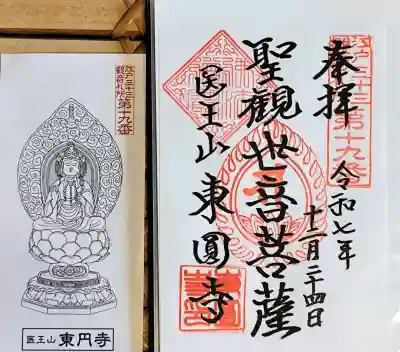 江戸三十三
観音札所
第十九番
医王山 東円寺
奉拝
江戸三十三第十九番
令和七年
十二月二十四日
聖觀世音菩薩
医王山東圓寺